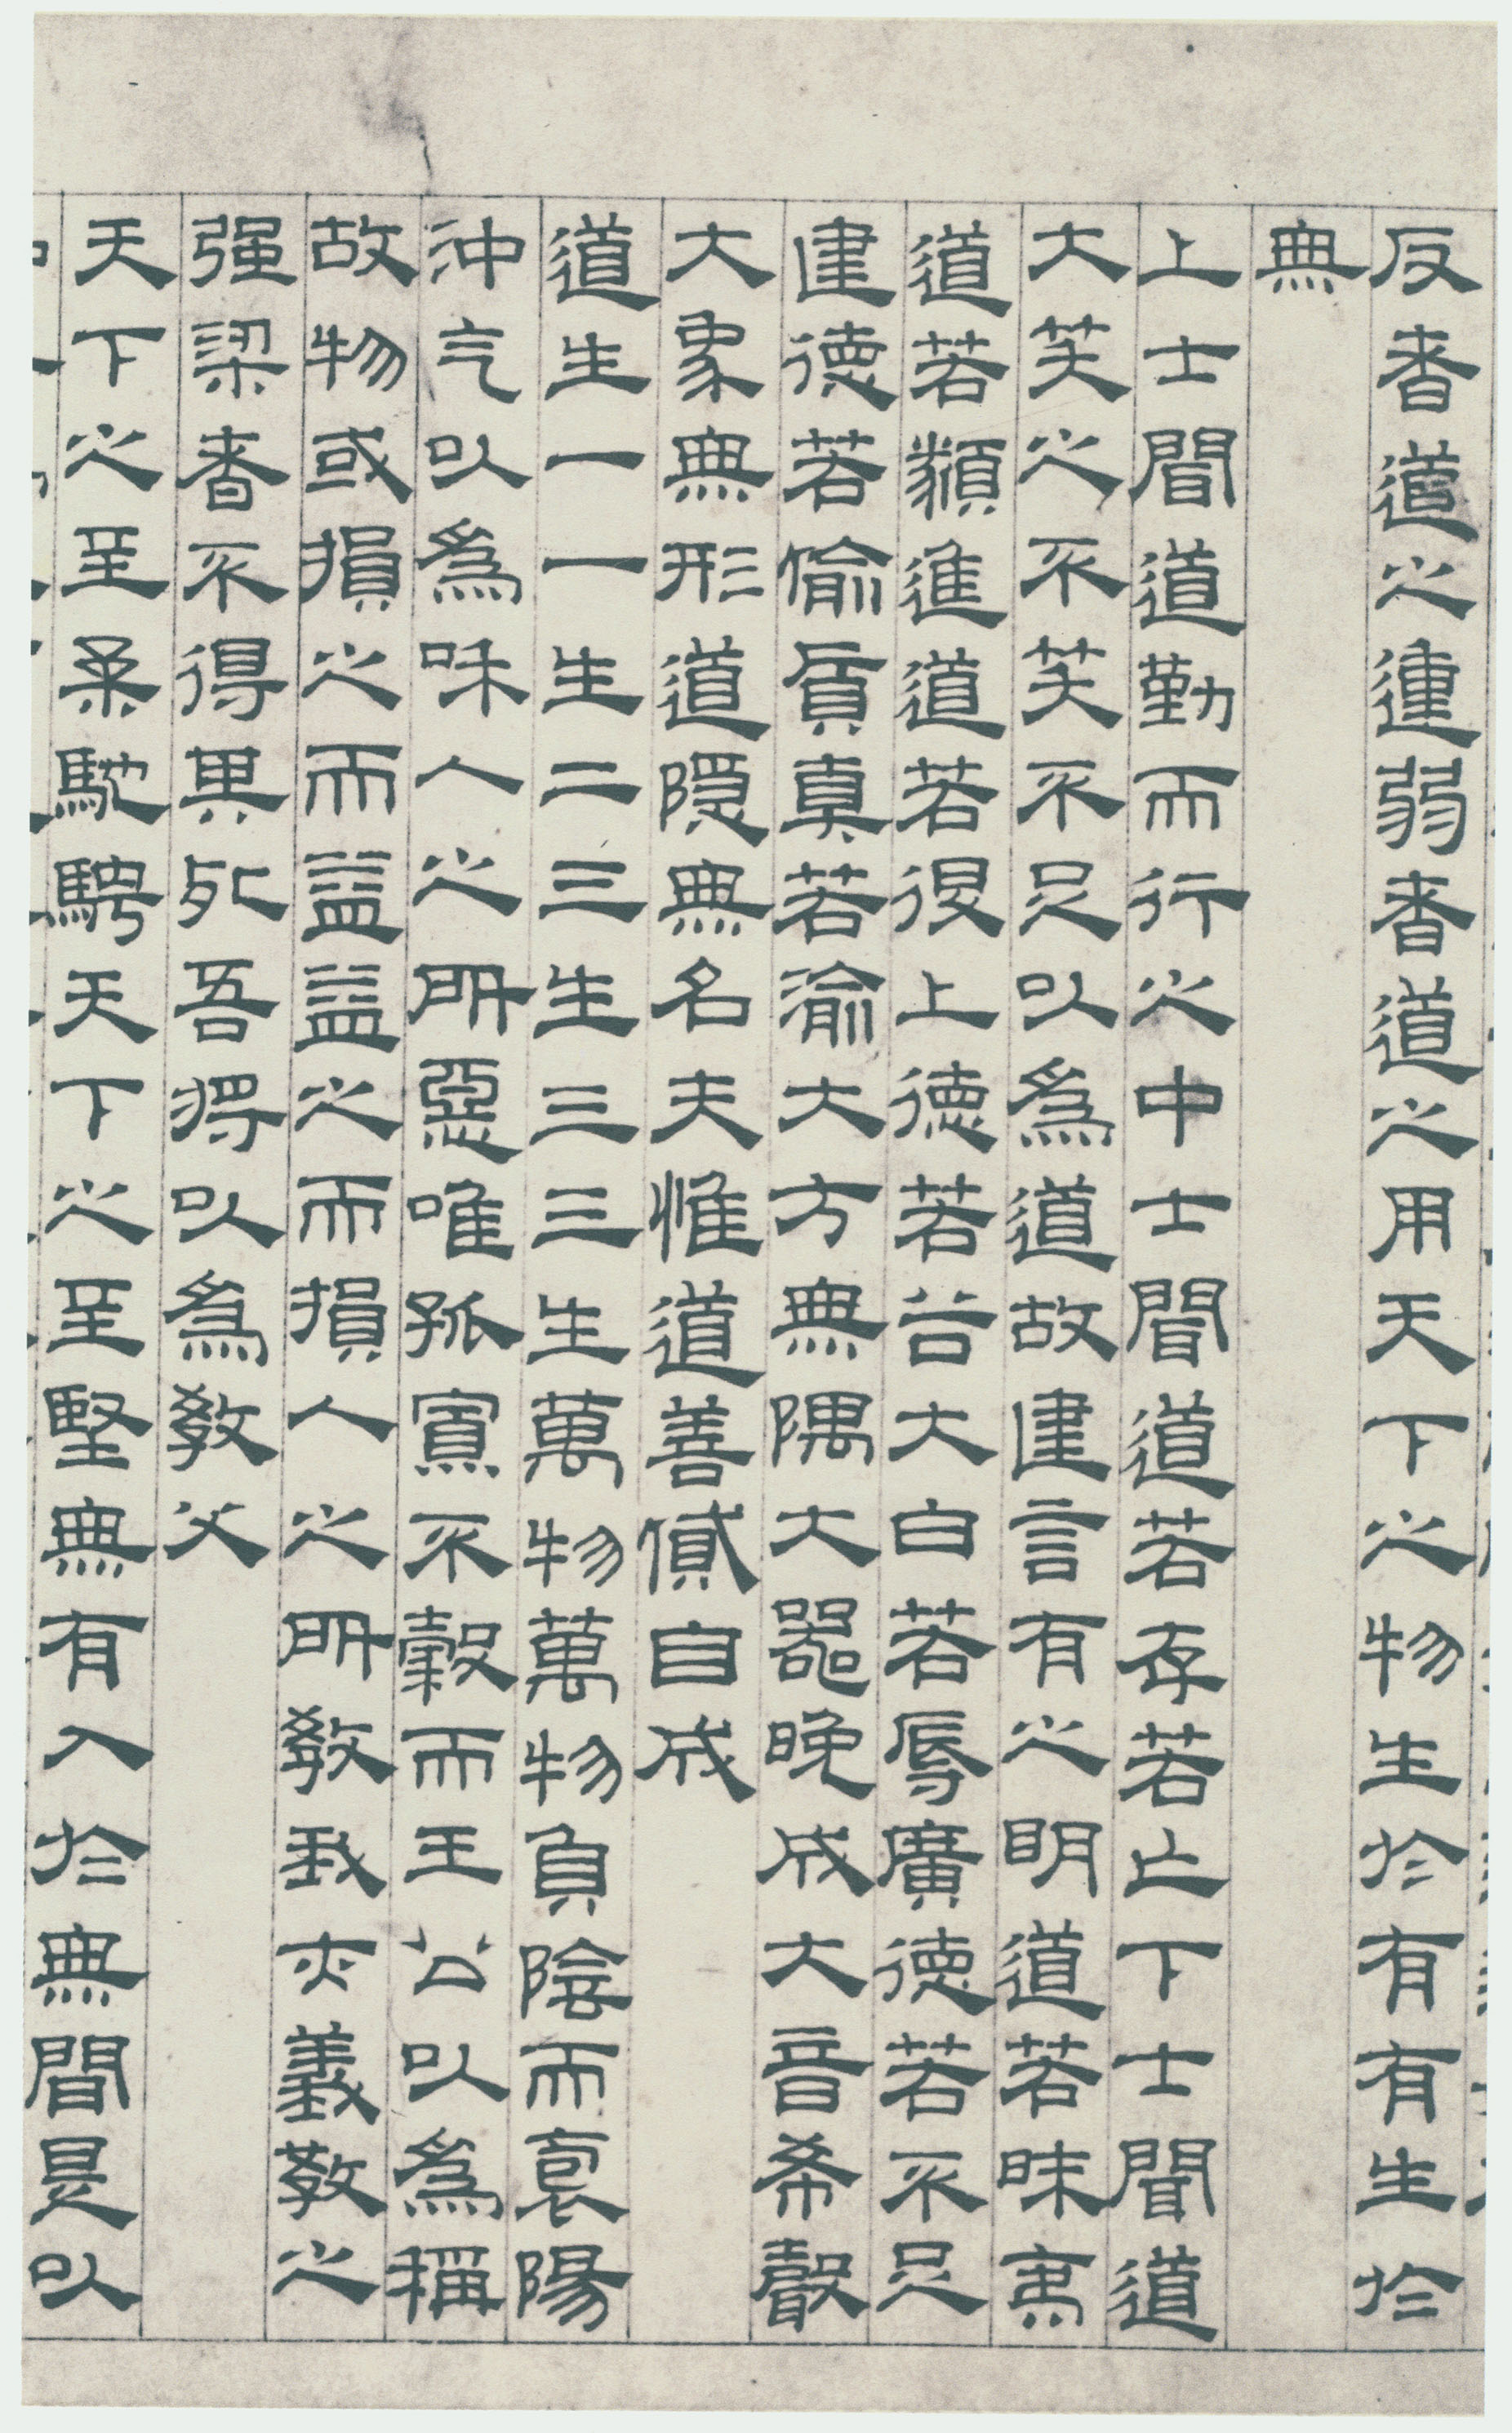 反者道之𨔝弱者道之用天下之物生於有有生於
無
上士聞道勤而行之中士聞道若存若亡下士聞道
大笑之不笑不足以為道故建言有之明道若昧夷
道若纇進道若退上德若谷大白若辱廣德若不足
建德若偷質真若渝大方無隅大器晚成大音希聲
大象無形道隱無名夫惟道善貸自成
道生一一生二三生三三生萬物萬物負陰而裒陽
沖气以為咊人之所惡唯孤寡不穀而王公以為稱
故物或損之而益益之而損人之所教我亦義教之
强梁者不得其死吾將以為教父
天下之至柔馳騁天下之至堅無有入於無間是以